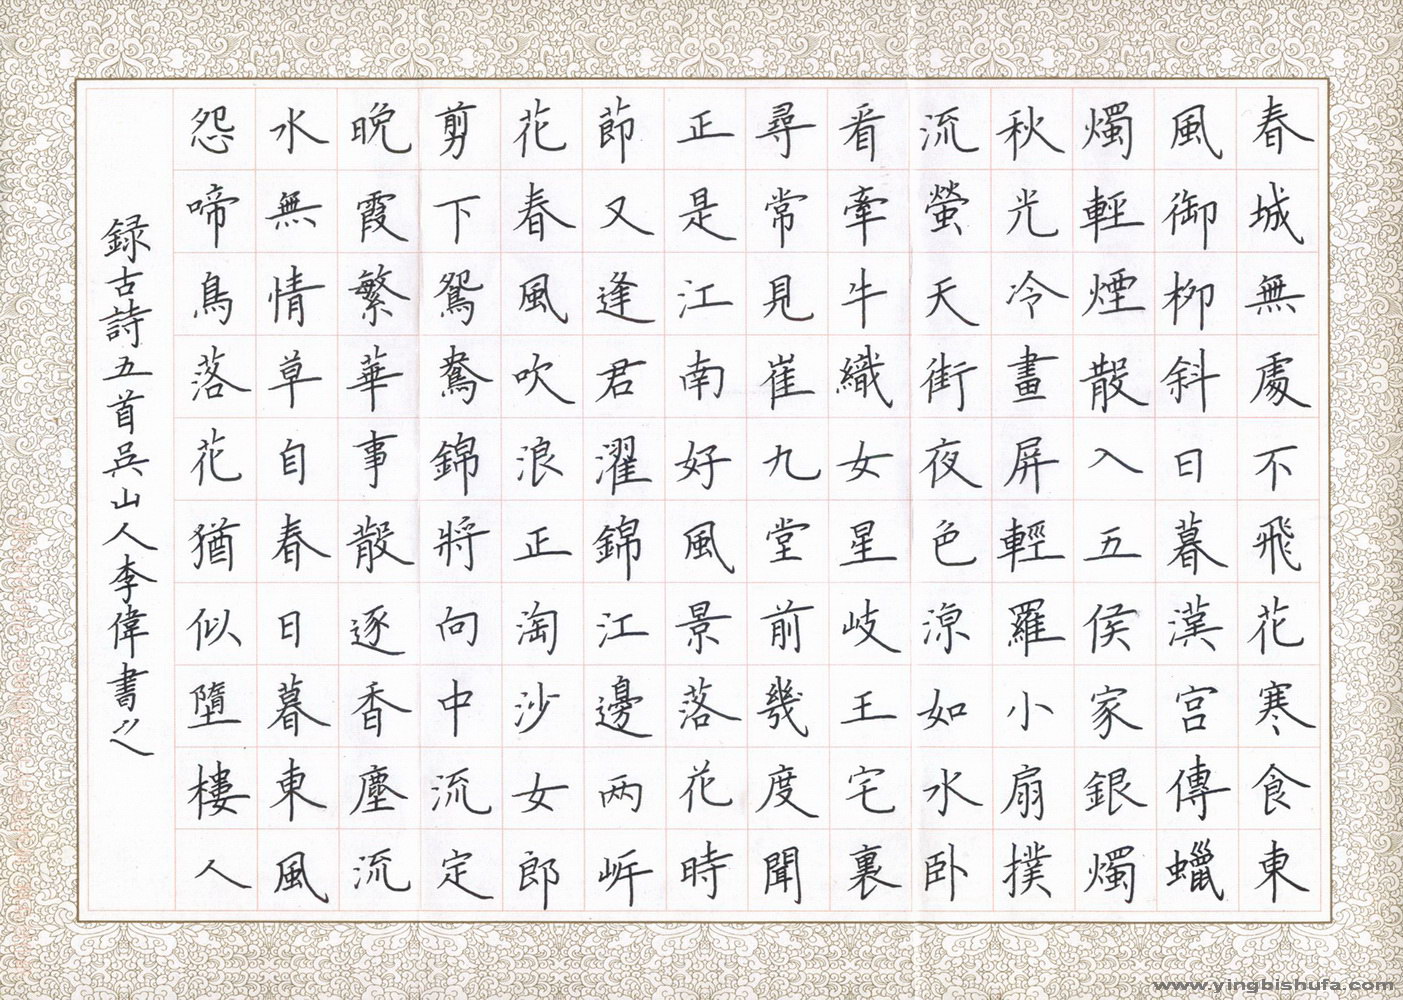 春城無處不飛花寒食東
風御柳斜日暮漢宮傳蠟
燭輕煙散入五侯家銀燭
秋光冷畫屏輕羅小扇撲
流螢天街夜色涼如水卧
看牽牛織女星岐王宅裏
尋常見崔九堂前幾度聞
正是江南好風景落花時
節又逢君濯錦江邊两岸
花春風吹浪正淘沙女郎
剪下鴛鴦錦將向中流定
晚霞繁華事散逐香塵流
水無情草自春日暮東風
怨啼鳥落花猶似墮樓人
録古詩五首吳山人李偉書之
www.yingbishufa.com